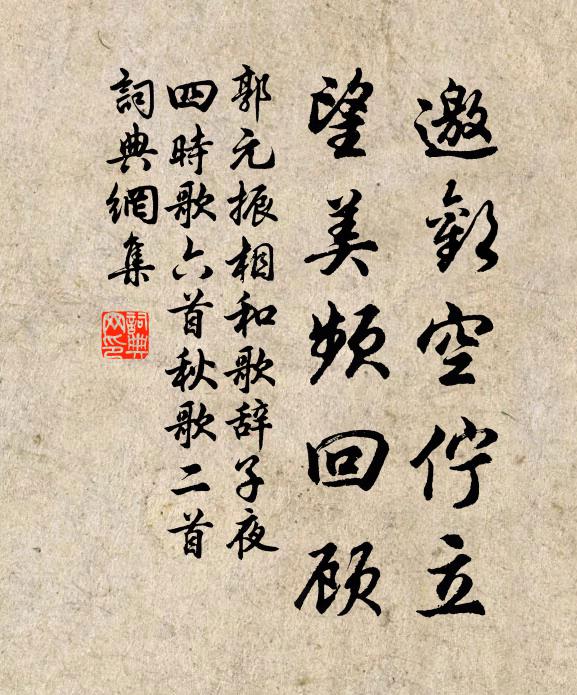 邀歡空佇立
望美頻回顾
郭元振相和歌辞子夜
四時歌六首秋歌二首
詞典網集
詞典网印